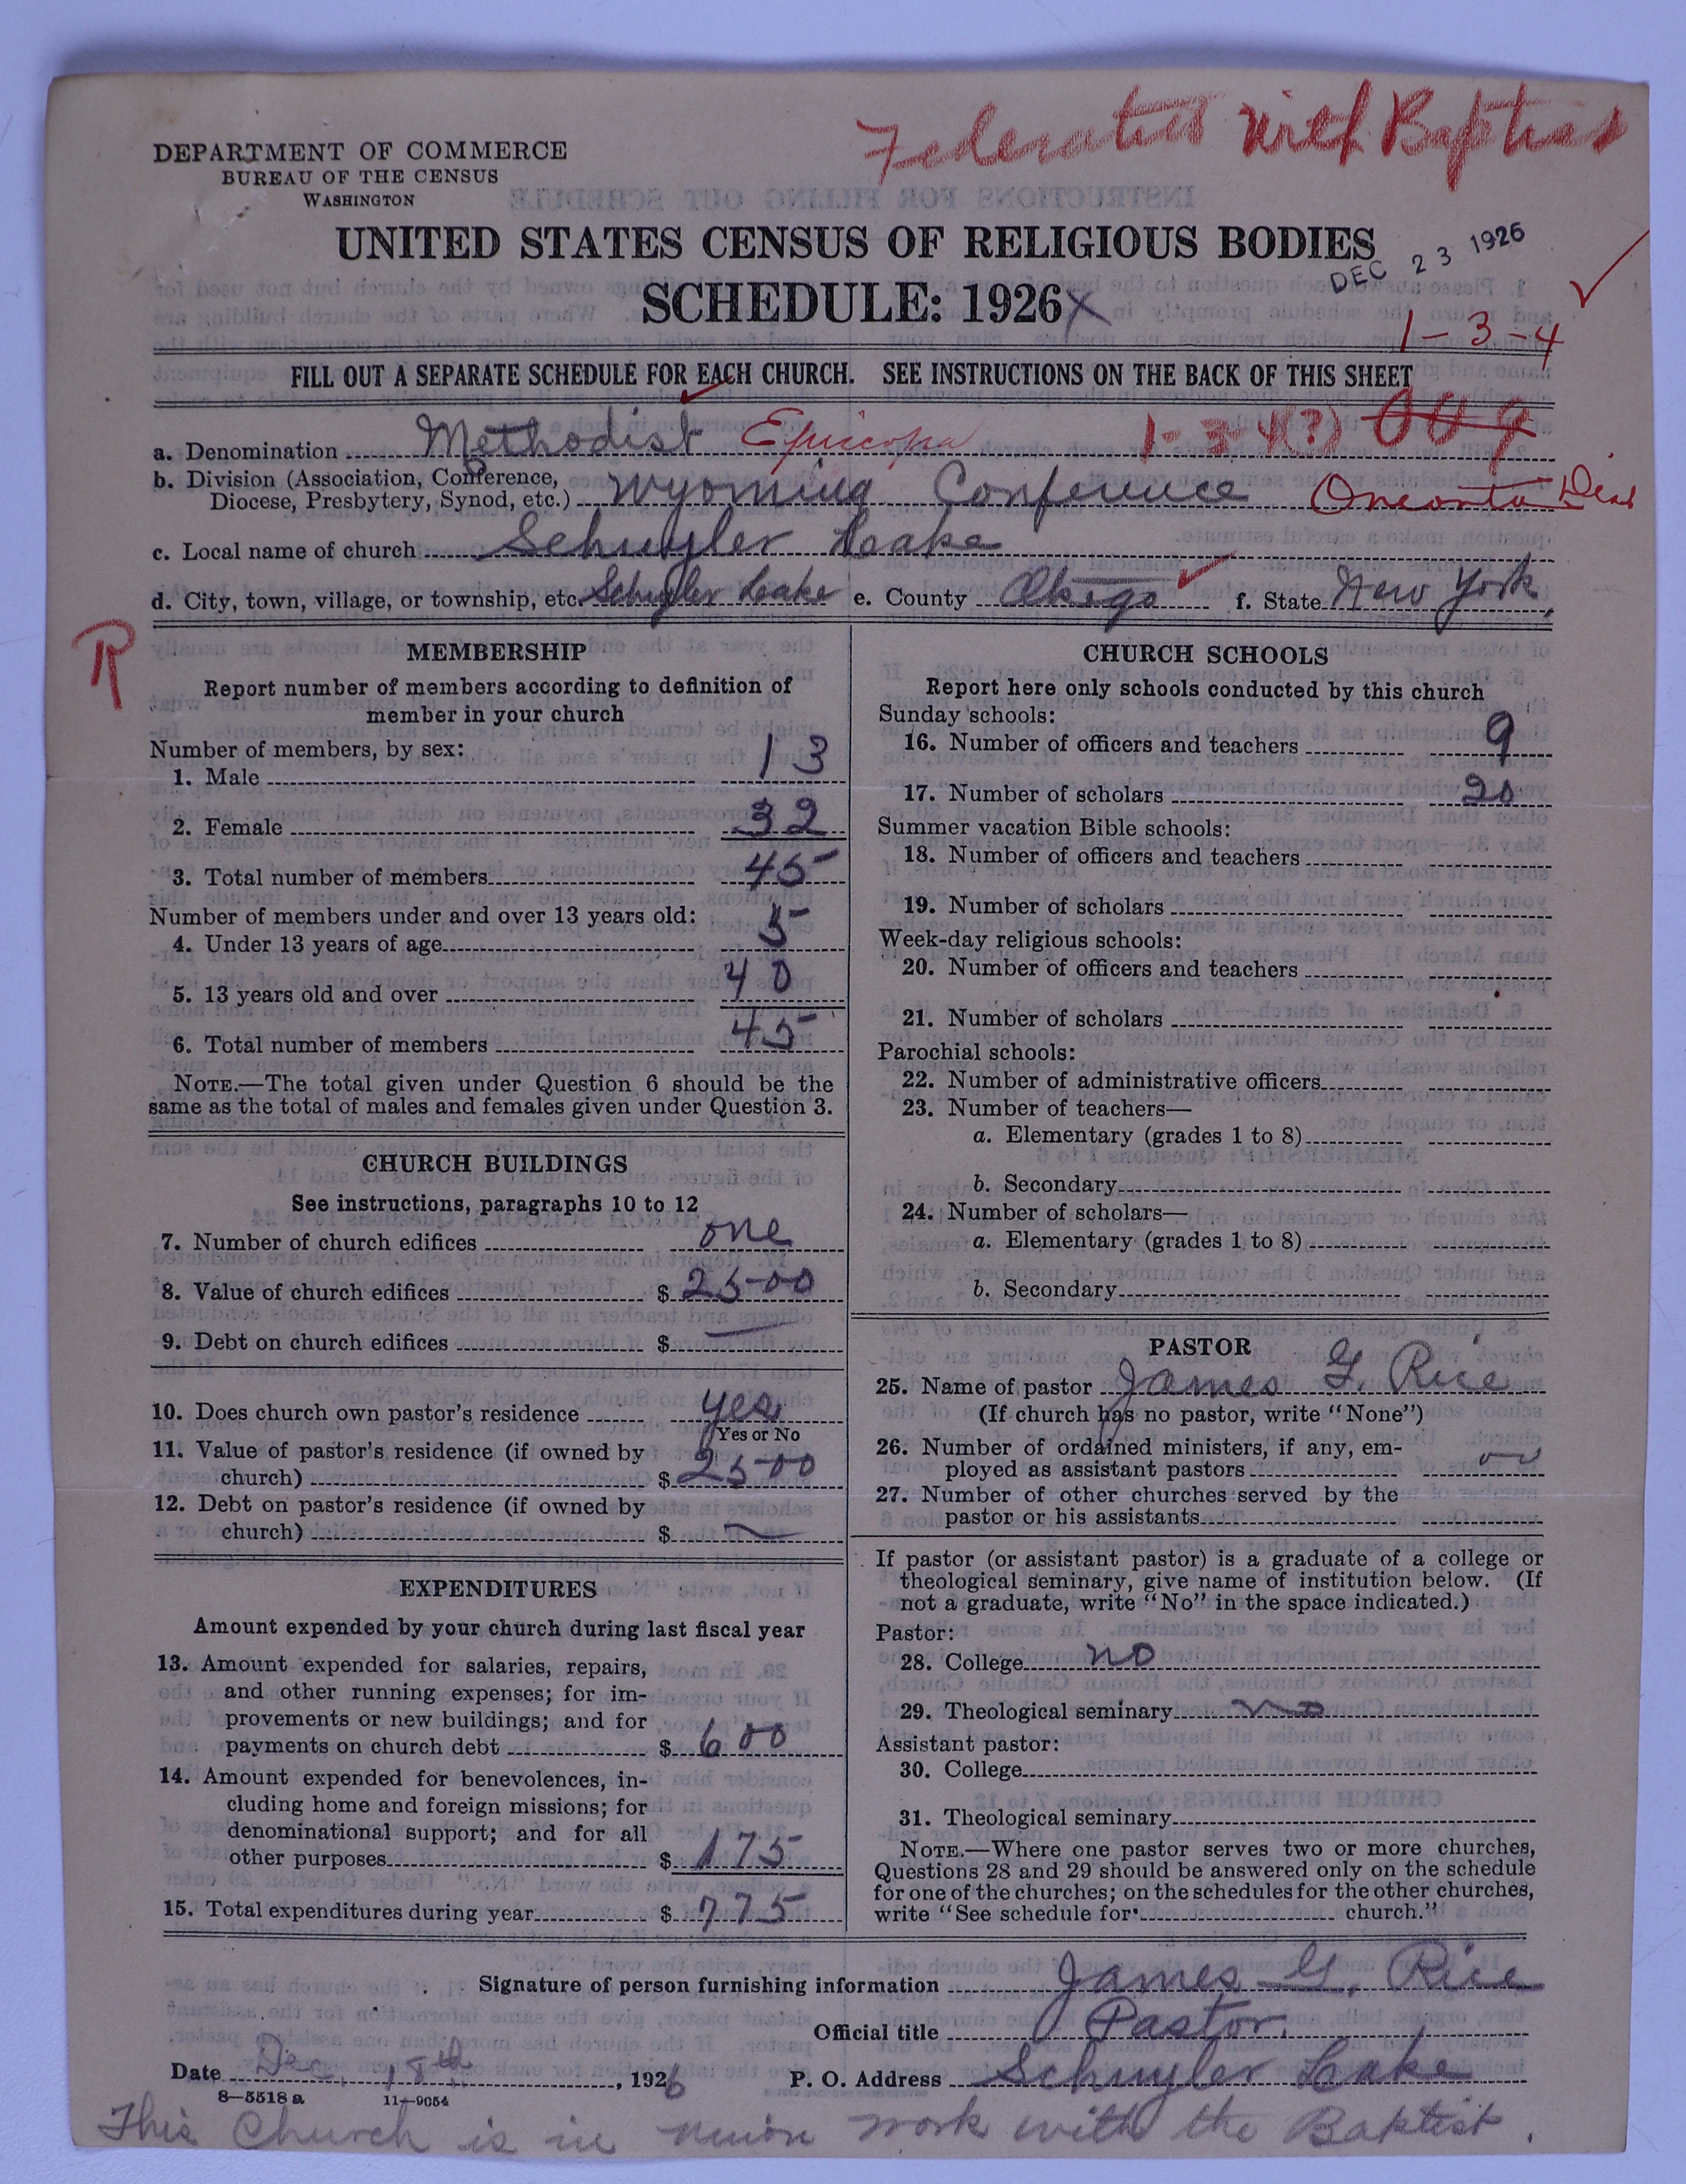 Federated with Baptist
DEPARTMENT OF COMMERCE
BUREAU OF THE CENSUS
WASHINGTON
UNITED STATES CENSUS OF RELIGIOUS BODIES
DEC 23 1926
SCHEDULE: 1926 X
1-3-4
FILL OUT A SEPARATE SCHEDULE FOR EACH CHURCH. SEE INSTRUCTIONS ON THE BACK OF THIS SHEET
a. Denomination Methodist Episcopa 1-3-4(?)
b. Division (Association, Conference,
Diocese, Presbytery, Synod, etc.) Wyoming Conference Oneonta Dist
c. Local name of church Schuyler Lake
d. City, town, village, or township, etc. Schuyler Lake e. County Otsego f. State New York
R
MEMBERSHIP
Report number of members according to definition of
member in your church
Number of members, by sex:
1. Male 13
2. Female 32
3. Total number of members 45
Number of members under and over 13 years old:
4. Under 13 years of age 5
5. 13 years old and over 40
6. Total number of members 45
NOTE.—The total given under Question 6 should be the
same as the total of males and females given under Question 3.
CHURCH BUILDINGS
See instructions, paragraphs 10 to 12
7. Number of church edifices one
8. Value of church edifices $ 2500
9. Debt on church edifices $ —
10. Does church own pastor's residence yes
Yes or No
11. Value of pastor's residence (if owned by
church) $ 2500
12. Debt on pastor's residence (if owned by
church) $ —
EXPENDITURES
Amount expended by your church during last fiscal year
13. Amount expended for salaries, repairs,
and other running expenses; for im-
provements or new buildings; and for
payments on church debt $ 600
14. Amount expended for benevolences, in-
cluding home and foreign missions; for
denominational support; and for all
other purposes $ 175
15. Total expenditures during year $ 775
CHURCH SCHOOLS
Report here only schools conducted by this church
Sunday schools:
16. Number of officers and teachers 9
17. Number of scholars 20
Summer vacation Bible schools:
18. Number of officers and teachers
19. Number of scholars
Week-day religious schools:
20. Number of officers and teachers
21. Number of scholars
Parochial schools:
22. Number of administrative officers
23. Number of teachers—
a. Elementary (grades 1 to 8)
b. Secondary
24. Number of scholars—
a. Elementary (grades 1 to 8)
b. Secondary
PASTOR
25. Name of pastor James G. Rice
(If church has no pastor, write "None")
26. Number of ordained ministers, if any, em-
ployed as assistant pastors
27. Number of other churches served by the
pastor or his assistants
If pastor (or assistant pastor) is a graduate of a college or
theological seminary, give name of institution below. (If
not a graduate, write "No" in the space indicated.)
Pastor:
28. College no
29. Theological seminary no
Assistant pastor:
30. College
31. Theological seminary
NOTE.—Where one pastor serves two or more churches,
Questions 28 and 29 should be answered only on the schedule
for one of the churches; on the schedules for the other churches,
write "See schedule for church."
Signature of person furnishing information James G. Rice
Official title Pastor.
Date Dec. 18th, 1926 P. O. Address Schuyler Lake
8—5518 a 11—9054
This Church is in union work with the Baptist.